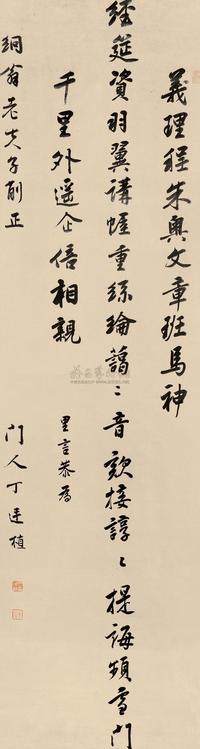 義理程朱奧文章班馬神
經筵資羽翼講幄重絲綸藹〻音欬接諄〻提誨頻雪門
千里外遥企倍相親
里言恭爲
絅翁老夫子削正
門人丁廷楗